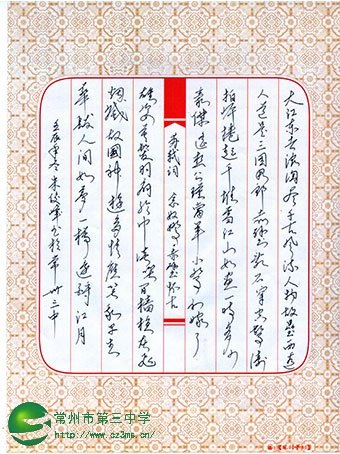 大江东去浪淘尽千古风流人物故垒西边
人道是三国周郎赤壁乱石穿空惊涛
拍岸捲起千堆雪江山如画一时多少
豪傑遥想公瑾当年小乔初嫁了
苏轼词 念奴娇赤壁怀古
雄姿英发羽扇纶巾谈笑间樯橹灰飞
烟灭故国神游多情应笑我早生
华发人间如梦一樽还酹江月
壬辰 三中
常州市第三中学
http://www.cz3ms.cn/